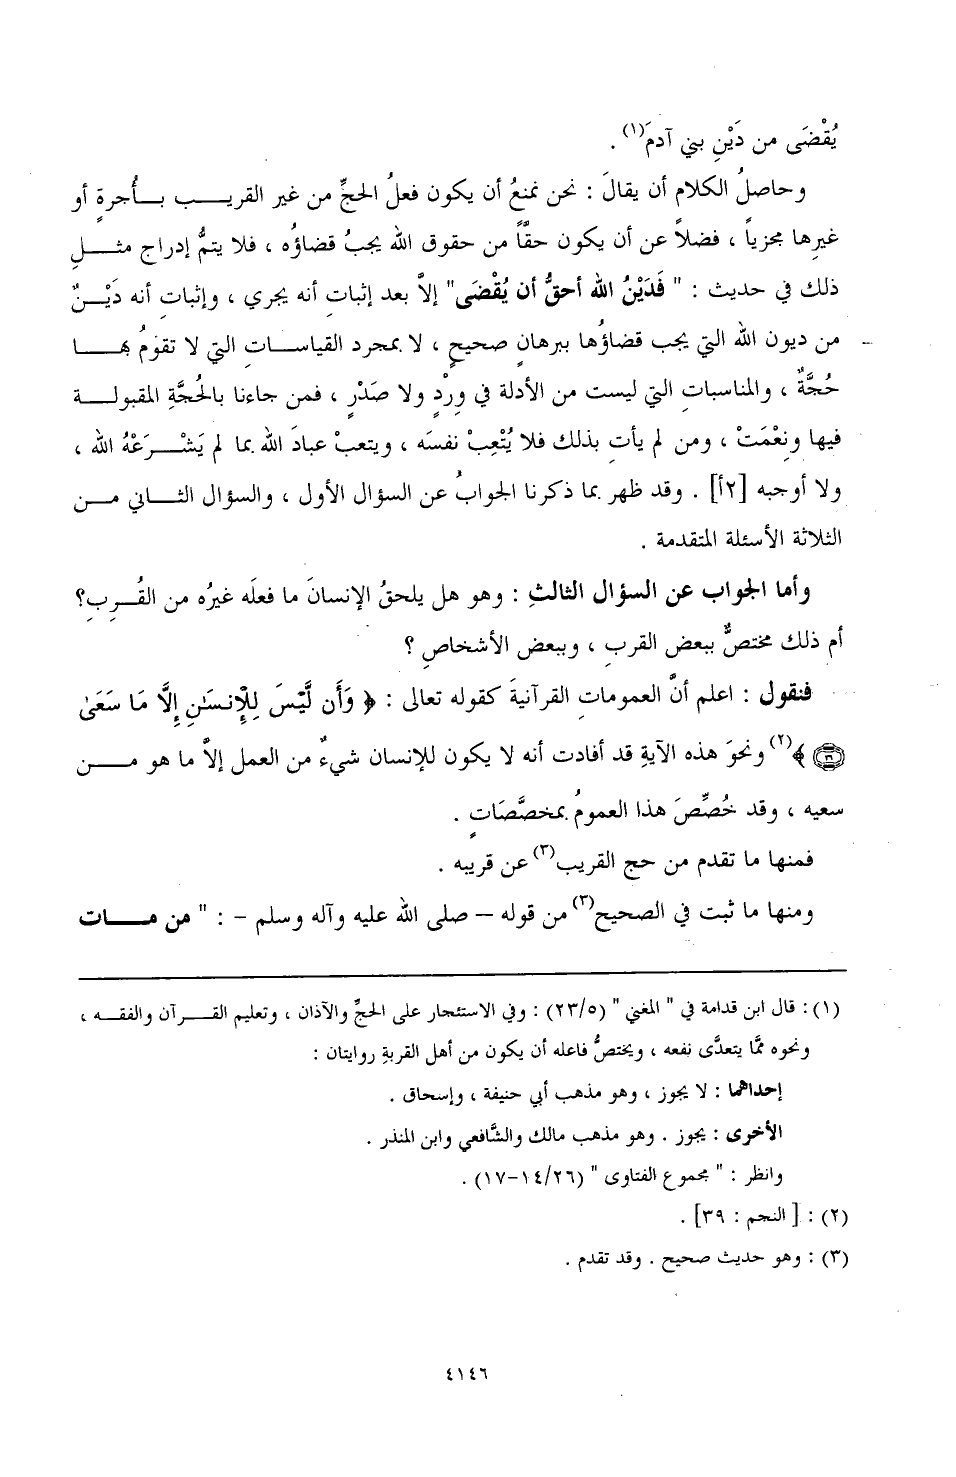 يُقْضَى من دَيْنِ بني آدمَ(١) .
وحاصلُ الكلام أن يقالَ : نحن نمنعُ أن يكون فعلُ الحجِّ من غير القريب بأُجرةٍ أو
غيرِها مجزياً ، فضلاً عن أن يكون حقّاً من حقوق الله يجبُ قضاؤُه ، فلا يتمُّ إدراج مثلِ
ذلك في حديث : " فَدَيْنُ الله أحقُّ أن يُقْضَى" إلاَّ بعد إثباتِ أنه يجري ، وإثباتِ أنه دَيْنٌ
من ديون الله التي يجب قضاؤُها ببرهانٍ صحيحٍ ، لا بمجرد القياساتِ التي لا تقومُ بها
حُجَّةٌ ، والمناسباتِ التي ليست من الأدلة في وِرْدٍ ولا صَدْرٍ ، فمن جاءنا بالحُجَّةِ المقبولة
فيها ونِعْمَتْ ، ومن لم يأتِ بذلك فلا يُتْعِبْ نفسَه ، ويتعبْ عبادَ الله بما لم يَشْرَعْهُ الله ،
ولا أوجبه [٢أ] . وقد ظهر بما ذكرنا الجوابُ عن السؤال الأول ، والسؤال الثاني من
الثلاثة الأسئلة المتقدمة .
وأما الجواب عن السؤال الثالثِ : وهو هل يلحقُ الإنسانَ ما فعلَه غيرُه من القُربِ؟
أم ذلك مختصٌّ ببعض القربِ ، وببعض الأشخاصِ ؟
فنقول : اعلم أنَّ العموماتِ القرآنيةَ كقوله تعالى : ﴿ وَأَن لَّيْسَ لِلْإِنسَٰنِ إِلَّا مَا سَعَىٰ
۝٣٩ ﴾(٢) ونحوَ هذه الآيةِ قد أفادت أنه لا يكون للإنسان شيءٌ من العمل إلاَّ ما هو من
سعيه ، وقد خُصِّصَ هذا العمومُ بمخصَّصَاتٍ .
فمنها ما تقدم من حج القريب(٣) عن قريبه .
ومنها ما ثبت في الصحيح(٣) من قوله – صلى الله عليه وآله وسلم – : " من مات
(١) : قال ابن قدامة في " المغني " (٢٣/٥) : وفي الاستئجار على الحجِّ والآذان ، وتعليم القرآن والفقه ،
ونحوه ممَّا يتعدَّى نفعه ، ويختصُّ فاعله أن يكون من أهل القربةِ روايتان :
إحداهما : لا يجوز ، وهو مذهب أبي حنيفة ، وإسحاق .
الأخرى : يجوز . وهو مذهب مالك والشَّافعي وابن المنذر .
وانظر : " مجموع الفتاوى " (١٤/٢٦-١٧) .
(٢) : [ النجم : ٣٩] .
(٣) : وهو حديث صحيح . وقد تقدم .
٤١٤٦